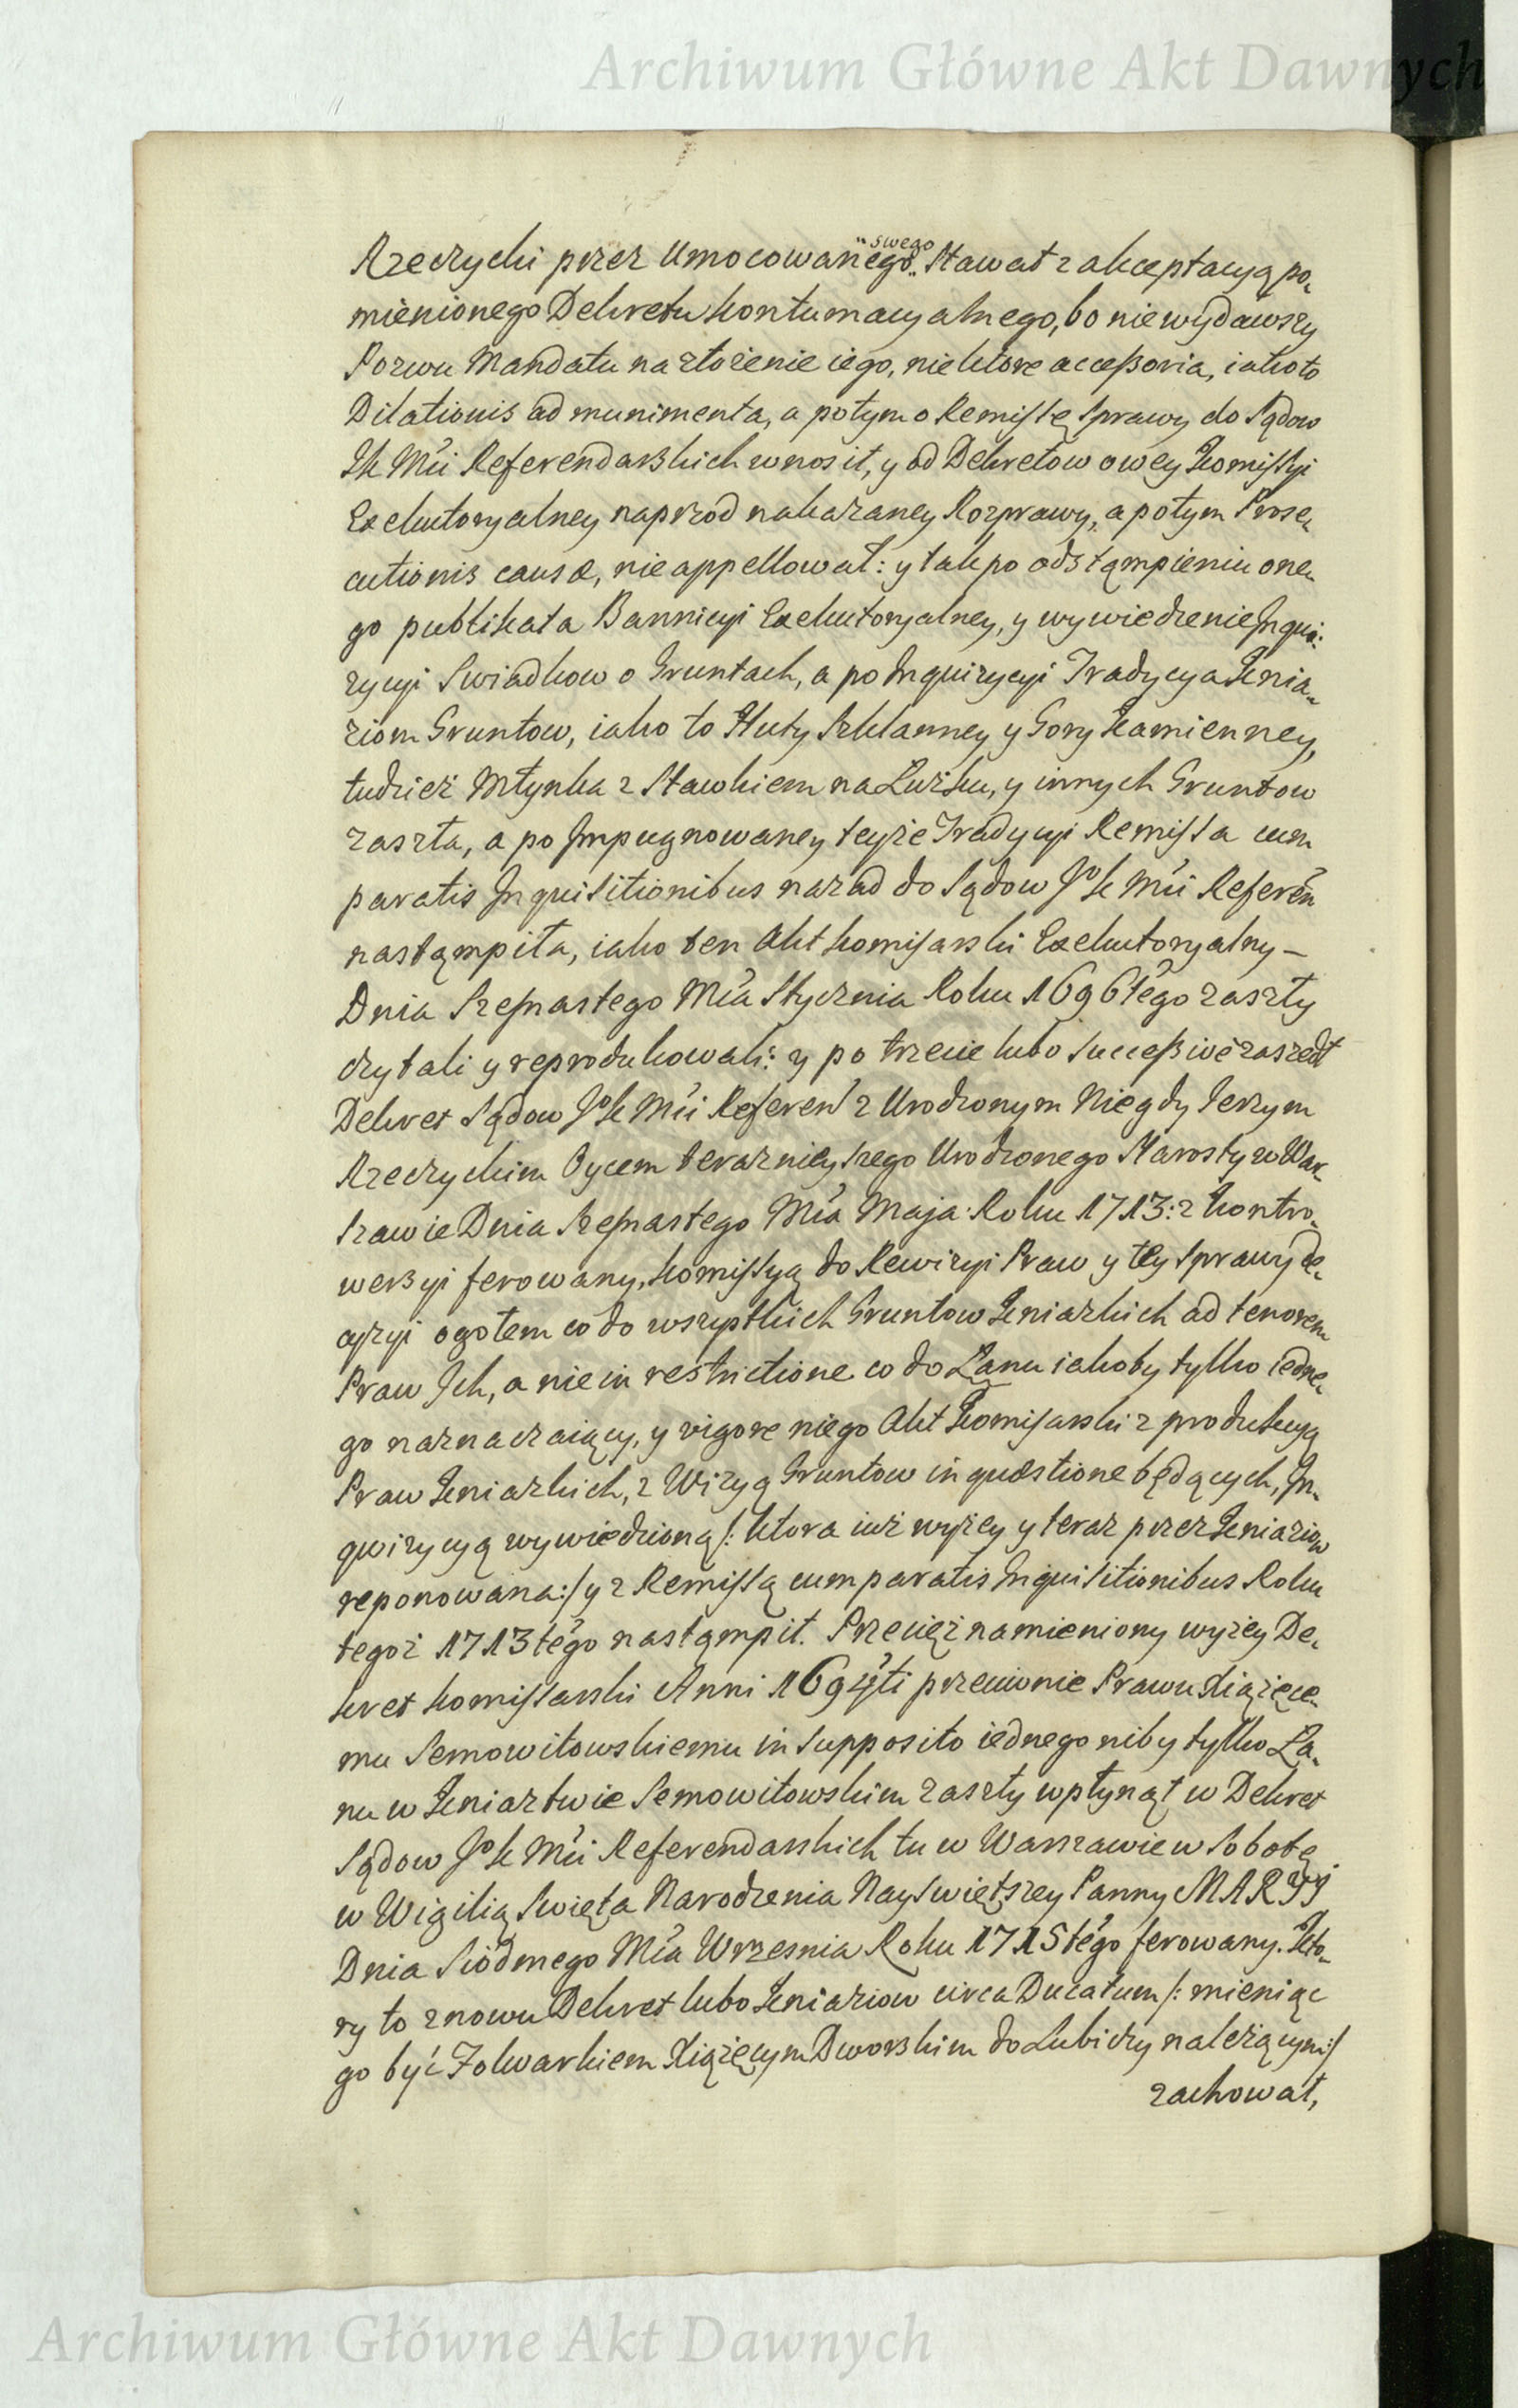 Archiwum Główne Akt Dawnych
Rzeczycki przez Umocowanego „swego„ stawał z akceptacyą po„
mienionego Dekretu kontumacyalnego, bo niewydawszy
Pozwu Mandatu na złożenie iego, niektore accessoria, iako to
Dilationis ad munimenta, a potym o Remissę sprawy do Sądow
JK Mci Referendarskich wnosił, y od Dekretow owey Kommissyi
Exekutoryalney naprzod nakazaney Rozprawy, a potym Prose„
cutionis causæ, nie appellował: y tak po odstąmpieniu one„
go publikata Bannicyi Exekutoryalney, y wywiedzenie Inqui:
zycyi Swiadkow o Gruntach, a po Inquizycyi Tradycya Knia„
ziom Gruntow, iako to Huty Szklanney y Gory Kamienney,
tudzież Młynka z Stawkiem na Łużku, y innych Gruntow
zaszła, a po Impugnowaney teyże Tradycyi Remissa cum
paratis Inquisitionibus nazad do Sądow JoK Mci Referen
nastąmpiła, iako ten Akt komisarski Exekutoryalny –
Dnia Szesnastego Mca Stycznia Roku 1696tego zaszły
czytali y reprodukowali: y po trzecie lubo successivè zaszedł
Dekret Sądow JoK Mci Referen z Urodzonym Niegdy Jerzym
Rzeczyckim Oycem teraznieyszego Urodzonego Starosty w War„
szawie Dnia Szesnastego Mca Maja Roku 1713: z kontro„
wersyi ferowany, kommissyą do Rewizyi Praw y tey sprawy de„
cyzyi ogołem co do wszystkich Gruntow Kniazkich ad tenorem
Praw Ich, a nie in restrictione co do Łanu iakoby tylko iedne„
go naznaczaiący, y vigore niego Akt Komisarski z produkcyą
Praw Kniazkich, z Wizyą Gruntow in quæstione będących, In„
quizycyą wywiedzioną /: ktora iuż wyżey y teraz przez Kniaziow
reponowana:/ y z Remissą cum paratis Inquisitionibus Roku
tegoż 1713tego nastąmpił. Przecięż namieniony wyżey De„
kret komissarski Anni 1694ti przeciwnie Prawu Xiążęce„
mu Semowitowskiemu in supposito iednego niby tylko Ła„
nu w Kniaztwie Semowitowskim zaszły wpłynął w Dekret
Sądow JoK Mci Referendarskich tu w Warszawie w Sobotę
w Wigilią Swięta Narodzenia Nayswiętszey Panny MARYI
Dnia Siodmego Mca Wrzesnia Roku 1715tego ferowany. Kto„
ry to znowu Dekret lubo Kniaziow circa Ducatum /: mieniąc
go być Folwarkiem Xiążęcym Dworskim do Lubiczy należącym:/
zachował,
Archiwum Główne Akt Dawnych